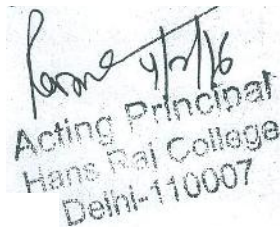 4/2/16
Acting Principal
Hans Raj College
Delhi-110007